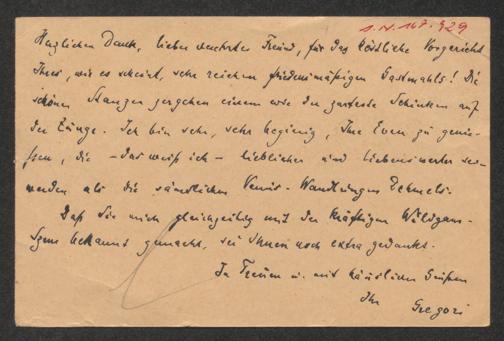 I. N. 167.929
Herzlichen Dank, lieber verehrter Freund, für das köstliche Vorgericht
Ihres, wie es scheint, sehr reichen friedensmäßigen Gastmahls! Die
schönen Stanzen zergehen einem wie der zarteste Schinken auf
der Zunge. Ich bin sehr, sehr begierig, Ihre Even zu genie-
ßen, die – das weiß ich – lieblicher und liebenswerter sein
werden als die sämtlichen Venus-Wandlungen Dehmels.
Daß Sie mich gleichzeitig mit der kräftigen Wildgans-
bekannt gemacht, sei Ihnen noch extra gedankt.
In Treuen u. mit häuslichen Grüßen
Ihr Gregori